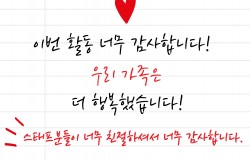 이번 활동 너무 감사합니다!
우리 가족은
더 행복했습니다!
스태프분들이 너무 친절하셔서 너무 감사합니다.